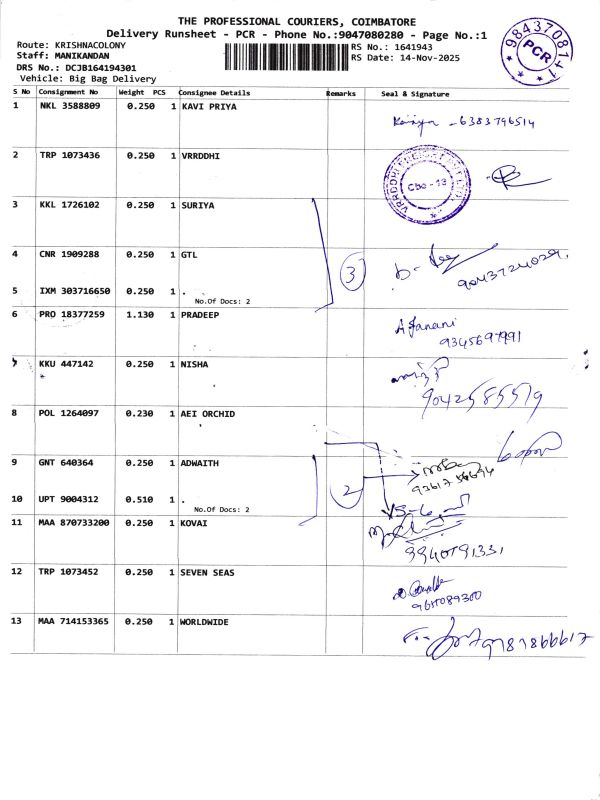 THE PROFESSIONAL COURIERS, COIMBATORE
Delivery Runsheet - PCR - Phone No.:9047080280 - Page No.:1
Route: KRISHNACOLONY
RS No.: 1641943
Staff: MANIKANDAN
RS Date: 14-Nov-2025
DRS No.: DCJB164194301
Vehicle: Big Bag Delivery
PCR
S No Consignment No Weight PCS Consignee Details Remarks Seal & Signature
1 NKL 3588809 0.250 1 KAVI PRIYA
6383796514
2 TRP 1073436 0.250 1 VRRDDHI
Cbe - 13
3 KKL 1726102 0.250 1 SURIYA
3
4 CNR 1909288 0.250 1 GTL
5 IXM 303716650 0.250 1 .
No.Of Docs: 2
6 PRO 18377259 1.130 1 PRADEEP
A Janani
9345697991
7 KKU 447142 0.250 1 NISHA
9042585579
8 POL 1264097 0.230 1 AEI ORCHID
9 GNT 640364 0.250 1 ADWAITH
2
10 UPT 9004312 0.510 1 .
No.Of Docs: 2
11 MAA 870733200 0.250 1 KOVAI
9940791331
12 TRP 1073452 0.250 1 SEVEN SEAS
13 MAA 714153365 0.250 1 WORLDWIDE